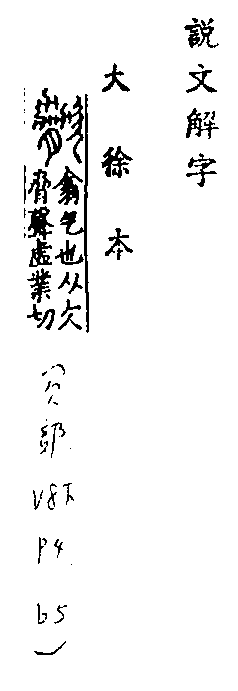 説文解字
大徐本
翕气也从欠
脅聲虛業切
(欠部 V8下 P4 b5)